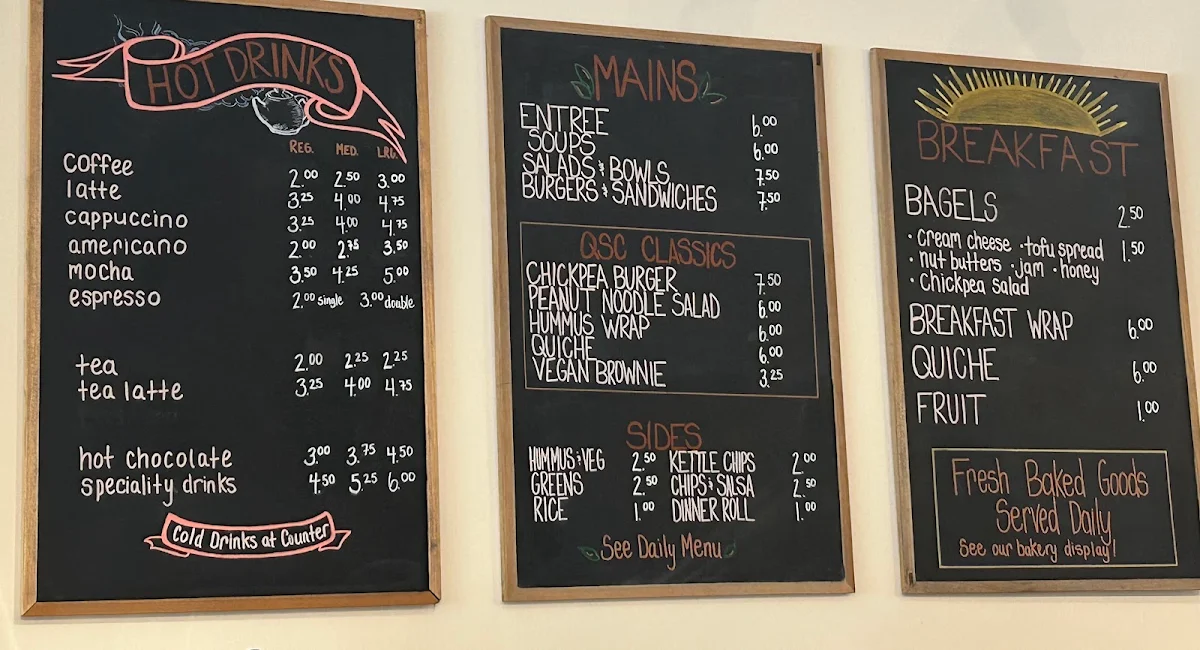 HOT DRINKS
REG. MED. LRG.
Coffee 2.00 2.50 3.00
latte 3.25 4.00 4.75
cappuccino 3.25 4.00 4.75
americano 2.00 2.75 3.50
mocha 3.50 4.25 5.00
espresso 2.00 single 3.00 double
tea 2.00 2.25 2.25
tea latte 3.25 4.00 4.75
hot chocolate 3.00 3.75 4.50
speciality drinks 4.50 5.25 6.00
Cold Drinks at Counter
MAINS
ENTREE 6.00
SOUPS 6.00
SALADS & BOWLS 7.50
BURGERS & SANDWICHES 7.50
QSC CLASSICS
CHICKPEA BURGER 7.50
PEANUT NOODLE SALAD 6.00
HUMMUS WRAP 6.00
QUICHE 6.00
VEGAN BROWNIE 3.25
SIDES
HUMMUS & VEG 2.50 KETTLE CHIPS 2.00
GREENS 2.50 CHIPS & SALSA 2.50
RICE 1.00 DINNER ROLL 1.00
See Daily Menu
BREAKFAST
BAGELS 2.50
• cream cheese • tofu spread 1.50
• nut butters • jam • honey
• Chickpea Salad
BREAKFAST WRAP 6.00
QUICHE 6.00
FRUIT 1.00
Fresh Baked Goods
Served Daily
See our bakery display!